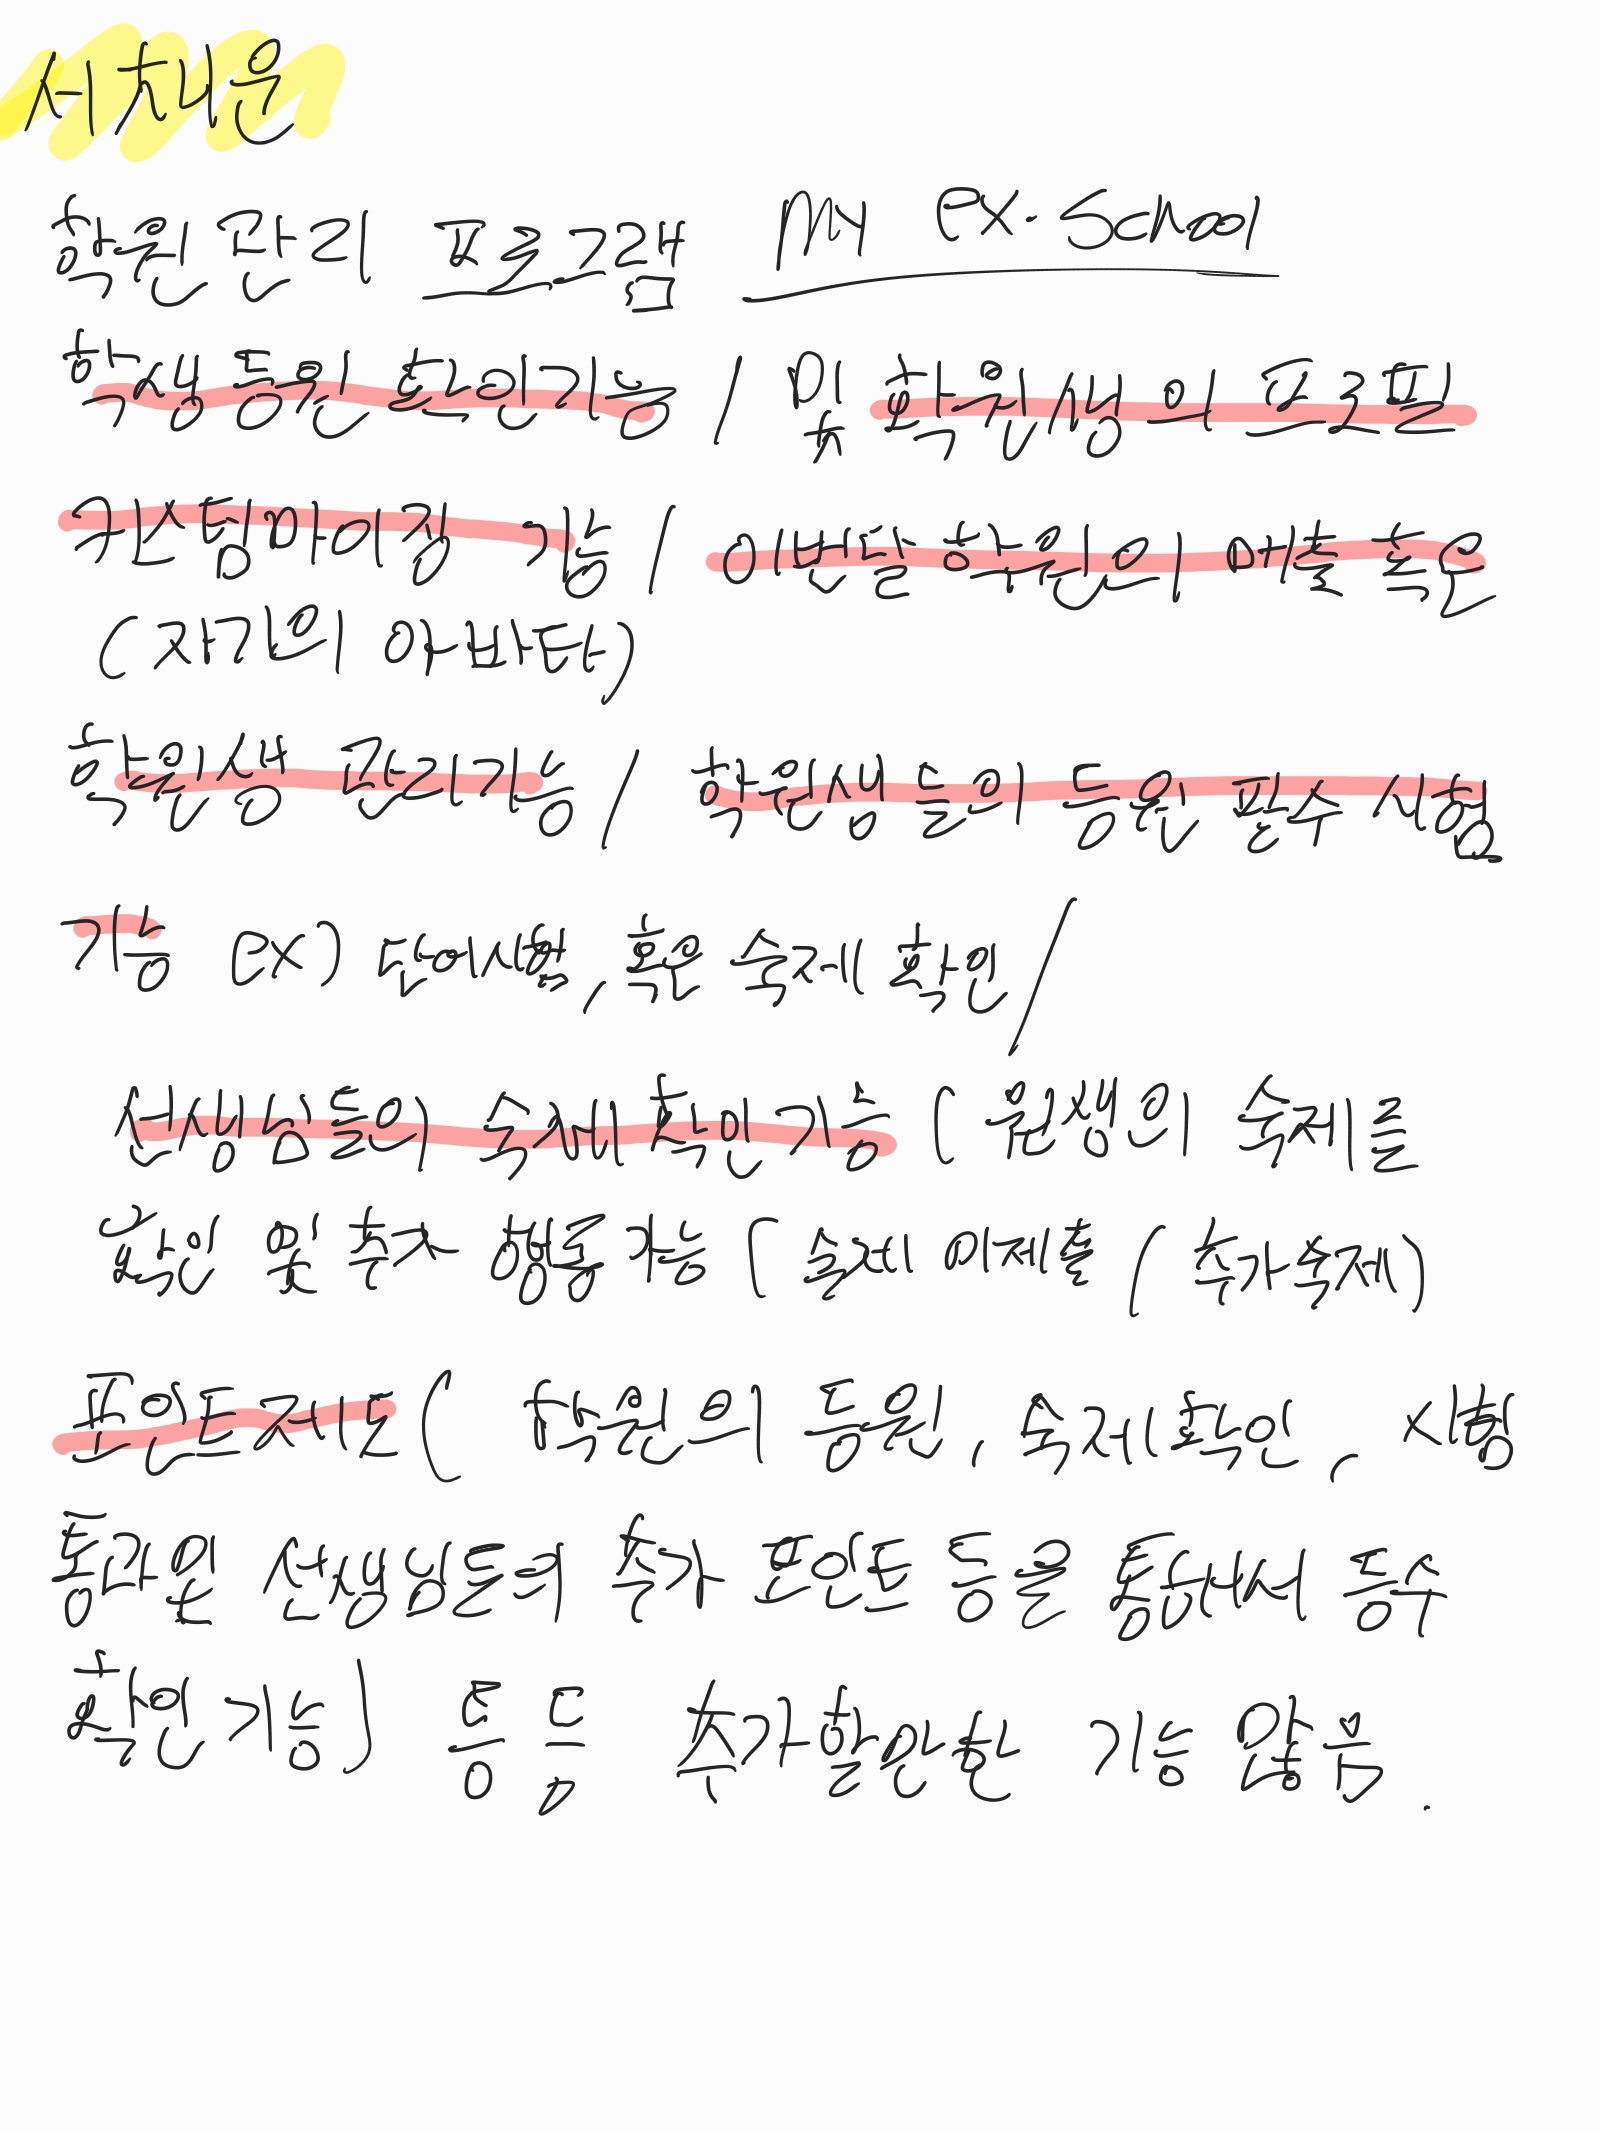 서치나운
학원 관리 프로그램 My ex. School
학생 등원 확인기능 / 및 학원생의 프로필
커스텀마이징 기능 / 이번달 학원의 매출 혹은
(자기의 아바타)
학원생 관리기능 / 학원생들의 등원 필수 시험
기능 ex) 단어시험, 혹은 숙제 확인 /
선생님들의 숙제 확인기능 ( 원생의 숙제를
확인 및 추가 행동 가능 ( 숙제 미제출 ( 추가숙제)
포인트제도 ( 학원의 등원, 숙제확인, 시험
통과및 선생님들의 추가 포인트 등을 통해서 등수
확인기능) 등등 추가할만한 기능 많음.